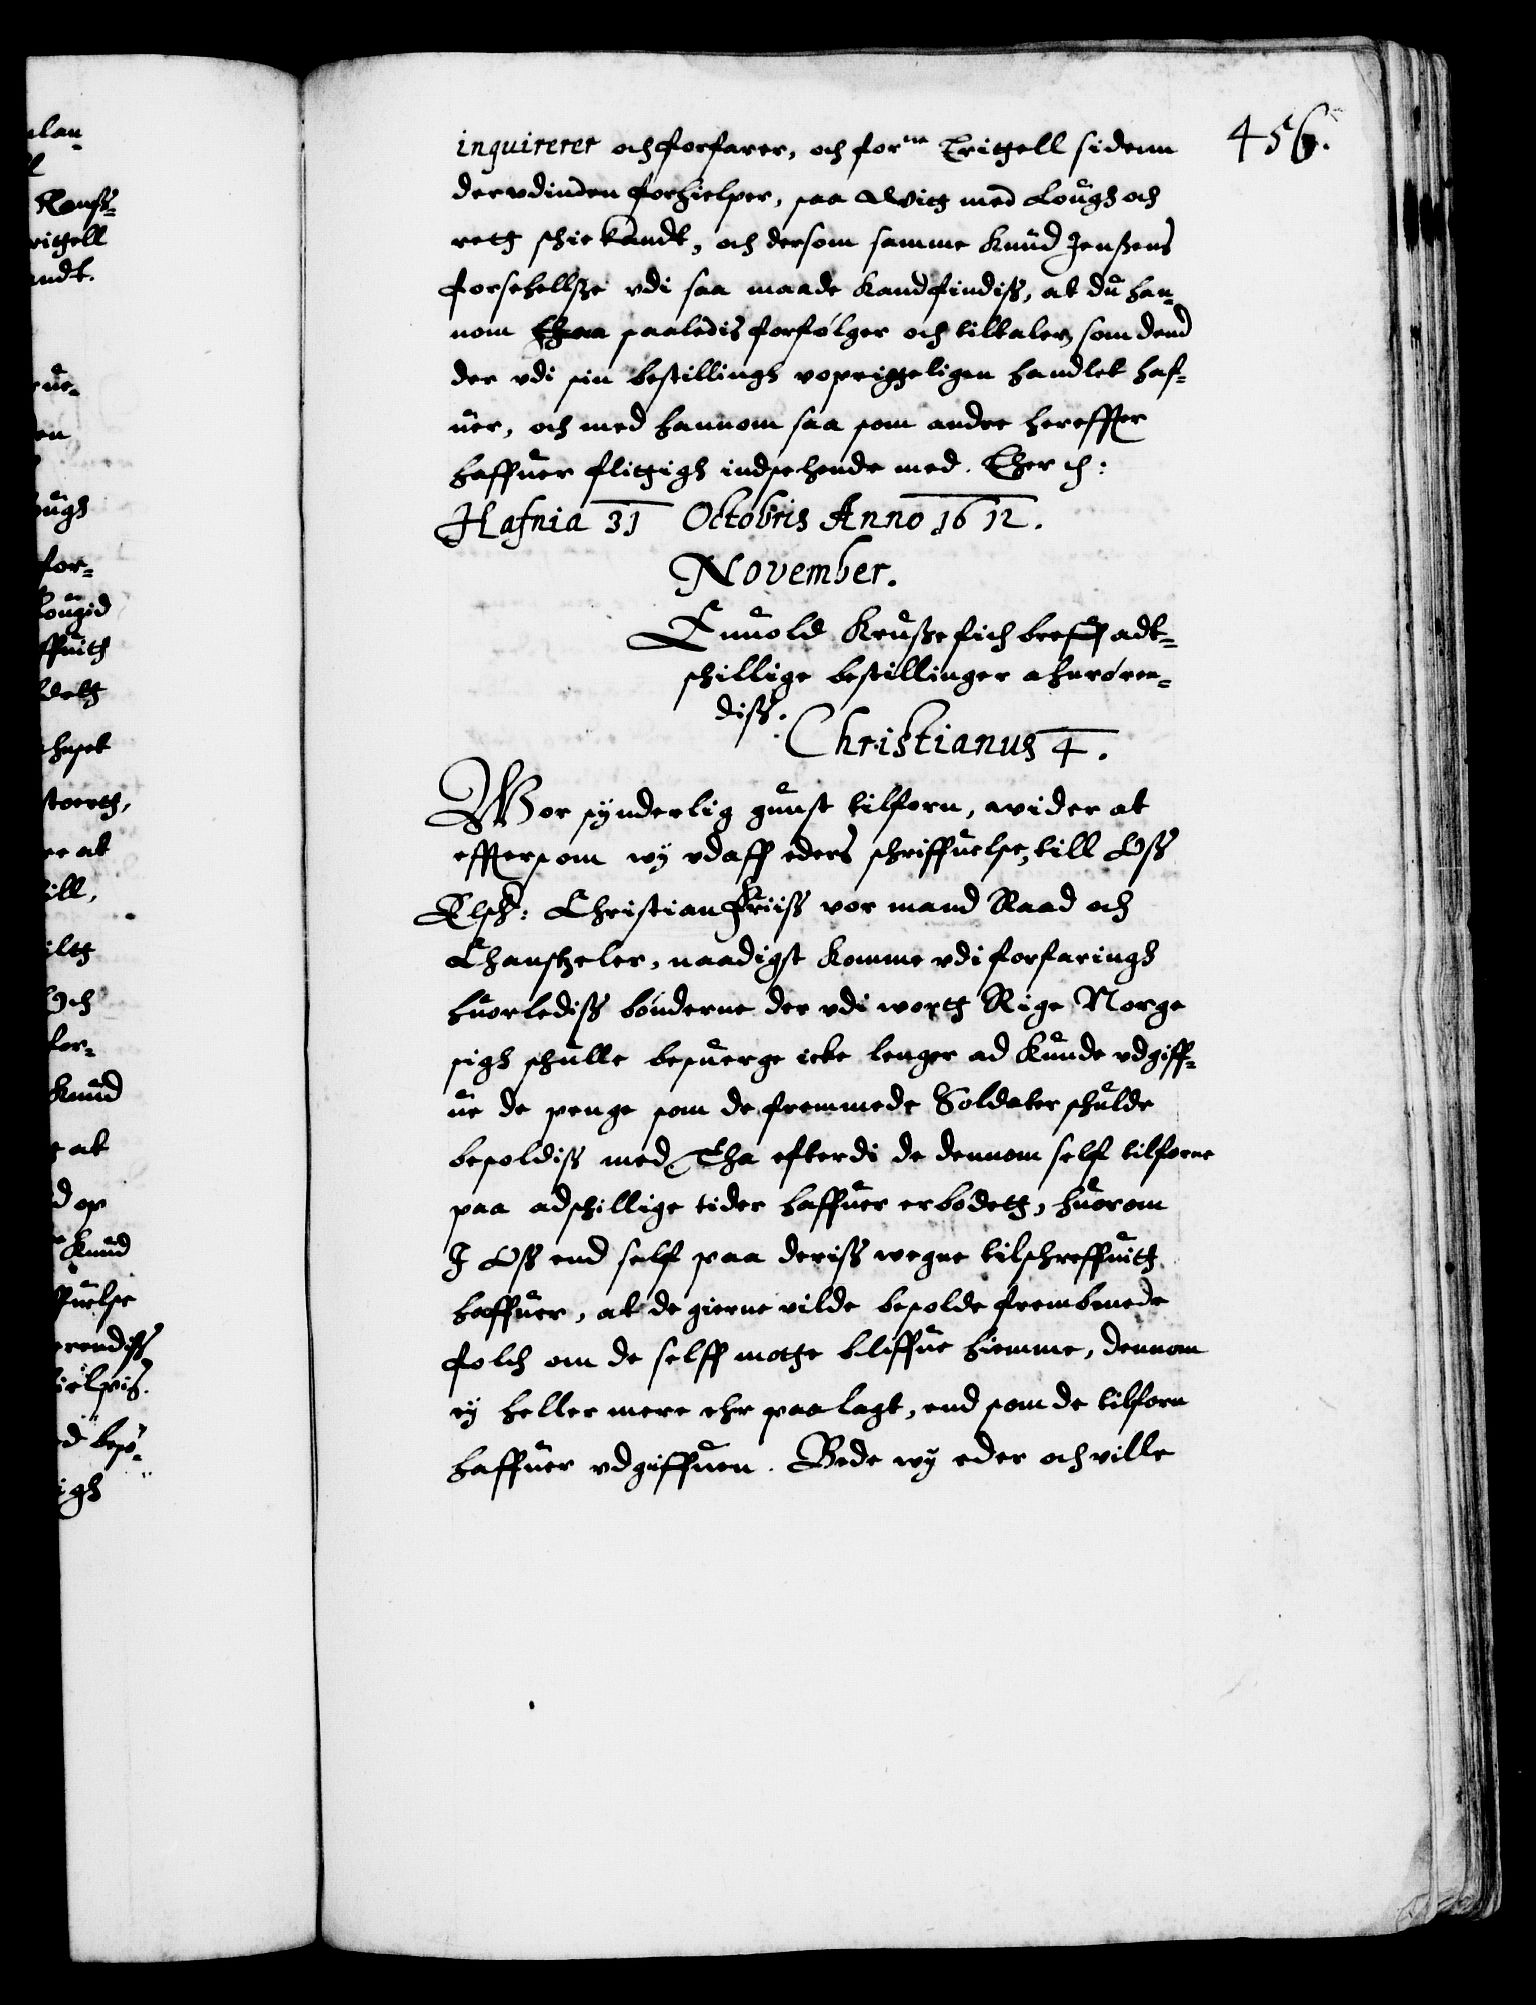 456.
inquirerer och forfarer, och forne Tritzell sidenn
der vdinden forhielper, saa Witt med Lough och
rett schie kandt, och dersom samme Knud Jenßens
forsehellsze vdi saa maade kand findiß, at du han-
nom saaledis forfølger och tiltaler, som dend
der vdi sin bestillingh voprigtteligen handlet haf-
uer, och med hannom saa som andre hereffter
haffuer flittigh indseende med. Ther ch:
Hafnia 31 Octobris Anno 1612.
November.
Enuold Kruße fich breff adt-
schillige bestillinger ahnrøren-
diß.
Christianus 4.
Wor synderlig gunst tilforn, wider at
effter som wy vdaff eders schriffuelse till Oß
Elsch: Christian Friiß vor mand Raad och
Chanstzeler, naadigst komme vdi forfaringh
huorlediß bønderne der vdi wortt Rige Norge
sigh schulle besuerge icke lenger ad kunde vdgiff-
ue de penge som de fremmede Soldater schulde
besoldiß med, Tha efterdi de dennom self tilforne
paa adschillige tider haffuer erbodett, huorom
I Oß end self paa deriß wegne tilschreffuitt
haffuer, at de gierne vilde besolde frembmede
folch om de selff motte bliffue hiemme, dennom
ey heller mere ehr paalagt, end som de tilforn
haffuer vdgiffuen. Bede wy eder och ville